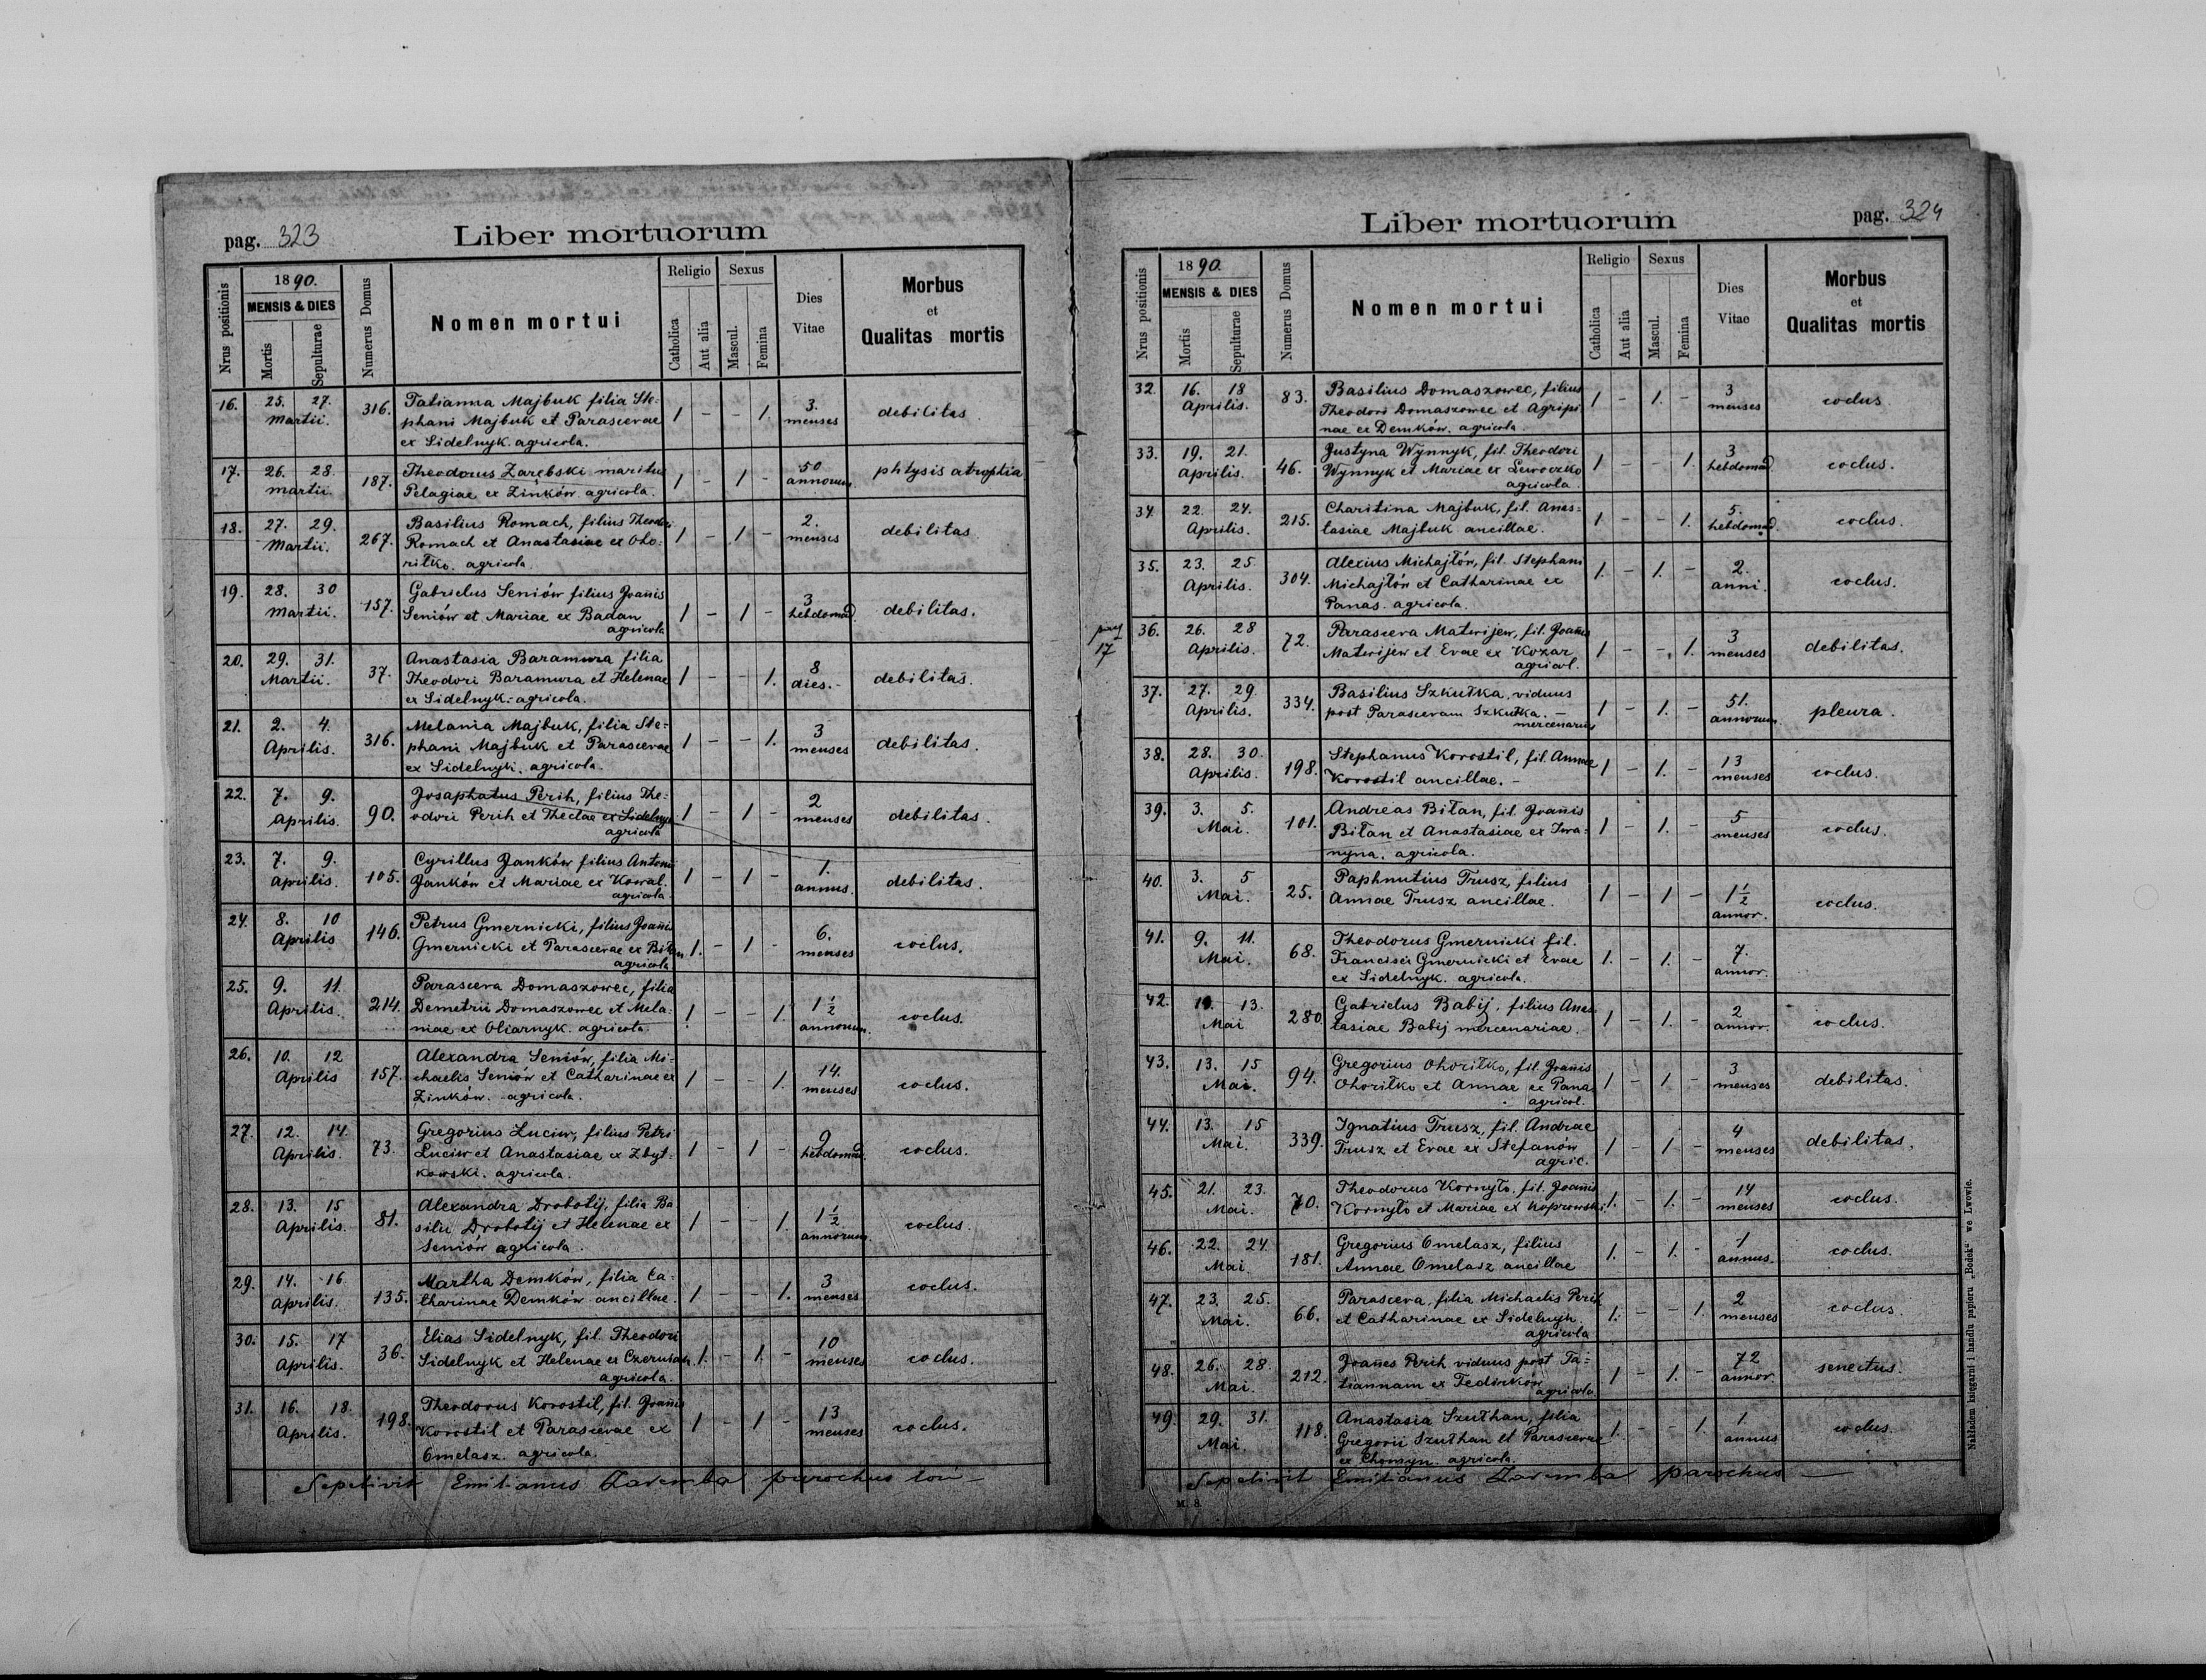 pag. 323
Liber mortuorum
Nrus positionis
1890.
MENSIS & DIES
Mortis
Sepulturae
Numerus Domus
Nomen mortui
Religio
Catholica
Aut alia
Sexus
Mascul.
Femina
Dies
Vitae
Morbus
et
Qualitas mortis
16. 25. 27. Martii. 316. Tatianna Majbuk filia Ste-
phani Majbuk et Parascevae
ex Sidelnyk. agricola. 1 - - 1. 3. menses debilitas
17. 26. 28. Martii 187. Theodorus Zarębski maritus
Pelagiae ex Zinków agricola. 1 - 1 - 50 annorum. phtysis atrophia
18. 27. 29. Martii. 267. Basilius Romach, filius Theodori
Romach et Anastasiae ex Oho-
riłko. agricola 1 - 1 - 2. menses debilitas
19. 28. 30 Martii. 157. Gabrielus Seniów filius Joannis
Seniów et Mariae ex Badan
agricola 1 - 1 - 3 hebdomad. debilitas.
20. 29. 31. Martii. 37. Anastasia Baramura filia
Theodori Baramura et Helenae
ex Sidelnyk. agricola. 1 - - 1. 8 dies. debilitas.
21. 2. 4. Aprilis. 316. Melania Majbuk, filia Ste-
phani Majbuk et Parascevae
ex Sidelnyk. agricola. 1 - - 1. 3 menses debilitas.
22. 7. 9. Aprilis. 90. Josaphatus Perih, filius The-
odori Perih et Theclae ex Sidelnyk
agricola 1 - 1 - 2 menses debilitas.
23. 7. 9. Aprilis. 105. Cyrillus Janków filius Antonii
Janków et Mariae ex Kowal.
agricola. 1 - 1 - 1. annus. debilitas.
24. 8. 10 Aprilis 146. Petrus Gmernicki, filius Joannis
Gmernicki et Parascevae ex Biłan
agricola 1. - 1 - 6. menses coclus.
25. 9. 11. Aprilis. 214. Parasceva Domaszowec, filia
Demetrii Domaszowec et Mela-
niae ex Oliarnyk. agricola. 1 - - 1. 1 1/2 annorum. coclus.
26. 10. 12 Aprilis 157. Alexandra Seniów, filia Mi-
chaelis Seniów et Catharinae ex
Zinków. agricola. 1 - - 1. 14. menses coclus.
27. 12. 14. Aprilis. 73. Gregorius Luciw, filius Petri
Luciw et Anastasiae ex Zbyt-
kowski. agricola. 1 - 1 - 9 hebdomad. coclus.
28. 13. 15 Aprilis. 81. Alexandra Drobotij, filia Ba
silii Drobotij et Helenae ex
Seniów agricola. 1 - - 1. 1 1/2 annorum. coclus.
29. 14. 16. Aprilis. 135. Martha Demków, filia Ca-
tharinae Demków ancillae. 1 - - 1. 3 menses coclus.
30. 15. 17 Aprilis. 36. Elias Sidelnyk, fil. Theodori
Sidelnyk et Helenae ex
agricola. 1. - 1. - 10 menses coclus.
31. 16. 18. Aprilis. 198. Theodorus Korostil, fil. Joannis
Korostil et Parascevae ex
Omelasz. agricola. 1 - 1 - 13 menses coclus.
Sepelivit Emilianus Zaremba parochus loci
pag. 324
Liber mortuorum
Nrus positionis
1890.
MENSIS & DIES
Mortis
Sepulturae
Numerus Domus
Nomen mortui
Religio
Catholica
Aut alia
Sexus
Mascul.
Femina
Dies
Vitae
Morbus
et
Qualitas mortis
32. 16. 18 Aprilis. 83. Basilius Domaszowec, filius
Theodori Domaszowec et Agripi
nae ex Demków. agricola. 1 - 1. - 3 menses coclus
33. 19. 21. Aprilis. 46. Justyna Wynnyk, fil. Theodori
Wynnyk et Mariae ex
agricola. 1 - - 1. 3 hebdomad. coclus.
34. 22. 24. Aprilis. 215. Charitina Majbuk, fil. Anas-
tasiae Majbuk ancillae. 1 - - 1. 5. hebdomad. coclus.
35. 23. 25. Aprilis. 304. Alexius Michajłów, fil. Stephani
Michajłów et Catharinae ex
Panas. agricola. 1. - 1. - 2. anni. coclus.
pag 17
36. 26. 28 Aprilis. 72. Parasceva Matwijew, fil. Joannis
Matwijew et Evae ex Kozar
agricol. 1 - - 1. 3 menses debilitas.
37. 27. 29. Aprilis. 334. Basilius Szkułka, viduus
post Parascevam Szkułka. -
mercenarius 1 - 1. - 51. annorum pleura.
38. 28. 30. Aprilis. 198. Stephanus Korostil, fil. Annae
Korostil ancillae. - 1 - 1. - 13 menses coclus.
39. 3. 5. Mai. 101. Andreas Biłan, fil. Joannis
Biłan et Anastasiae ex Iwa-
nyna. agricola. 1 - 1. - 5 menses coclus.
40. 3. 5 Mai. 25. Paphnutius Trusz, filius
Annae Trusz ancillae. 1 - 1 - 1 1/2 annor. coclus.
41. 9. 11. Mai. 68. Theodorus Gmernicki fil.
Francisci Gmernicki et Evae
ex Sidelnyk. agricola. 1. - 1. - 7. annor.
42. 13. Mai 280. Gabrielus Babij, filius Anas-
tasiae Babij mercenariae. 1 - 1. - 2 annor. coclus.
43. 13. 15 Mai. 94. Gregorius Ohoriłko, fil. Joannis
Ohoriłko et Annae ex Panas
agricol. 1 - 1 - 3 menses debilitas.
44. 13. 15 Mai. 339. Ignatius Trusz, fil. Andrae
Trusz et Evae ex Stefanów
agric. 1 - 1 - 4 menses debilitas.
45. 21. 23. Mai. 70. Theodorus Kornyło. fil. Joannis
Kornyło et Mariae ex Koprowski. 1. - 1. - 14 menses coclus.
46. 22. 24. Mai. 181. Gregorius Omelasz, filius
Annae Omelasz ancillae 1. - 1. - 1 annus. coclus.
47. 23. 25. Mai. 66. Parasceva, filia Michaelis Perih
et Catharinae ex Sidelnyk.
agricola 1. - - 1. 2 menses coclus.
48. 26. 28. Mai. 212. Joannes Perih viduus post Ta-
tiannam ex Fedinków
agricola 1 - 1. - 72 annor. senectus.
49. 29. 31. Mai. 118. Anastasia Szuthan, filia
Gregorii Szuthan et Parascevae
ex Chomyn. agricola. 1. - - 1. 1. annus coclus.
Sepelivit Emilianus Zaremba parochus
M. 8.
Nakładem księgarni i handlu papieru „Bodek“ we Lwowie.